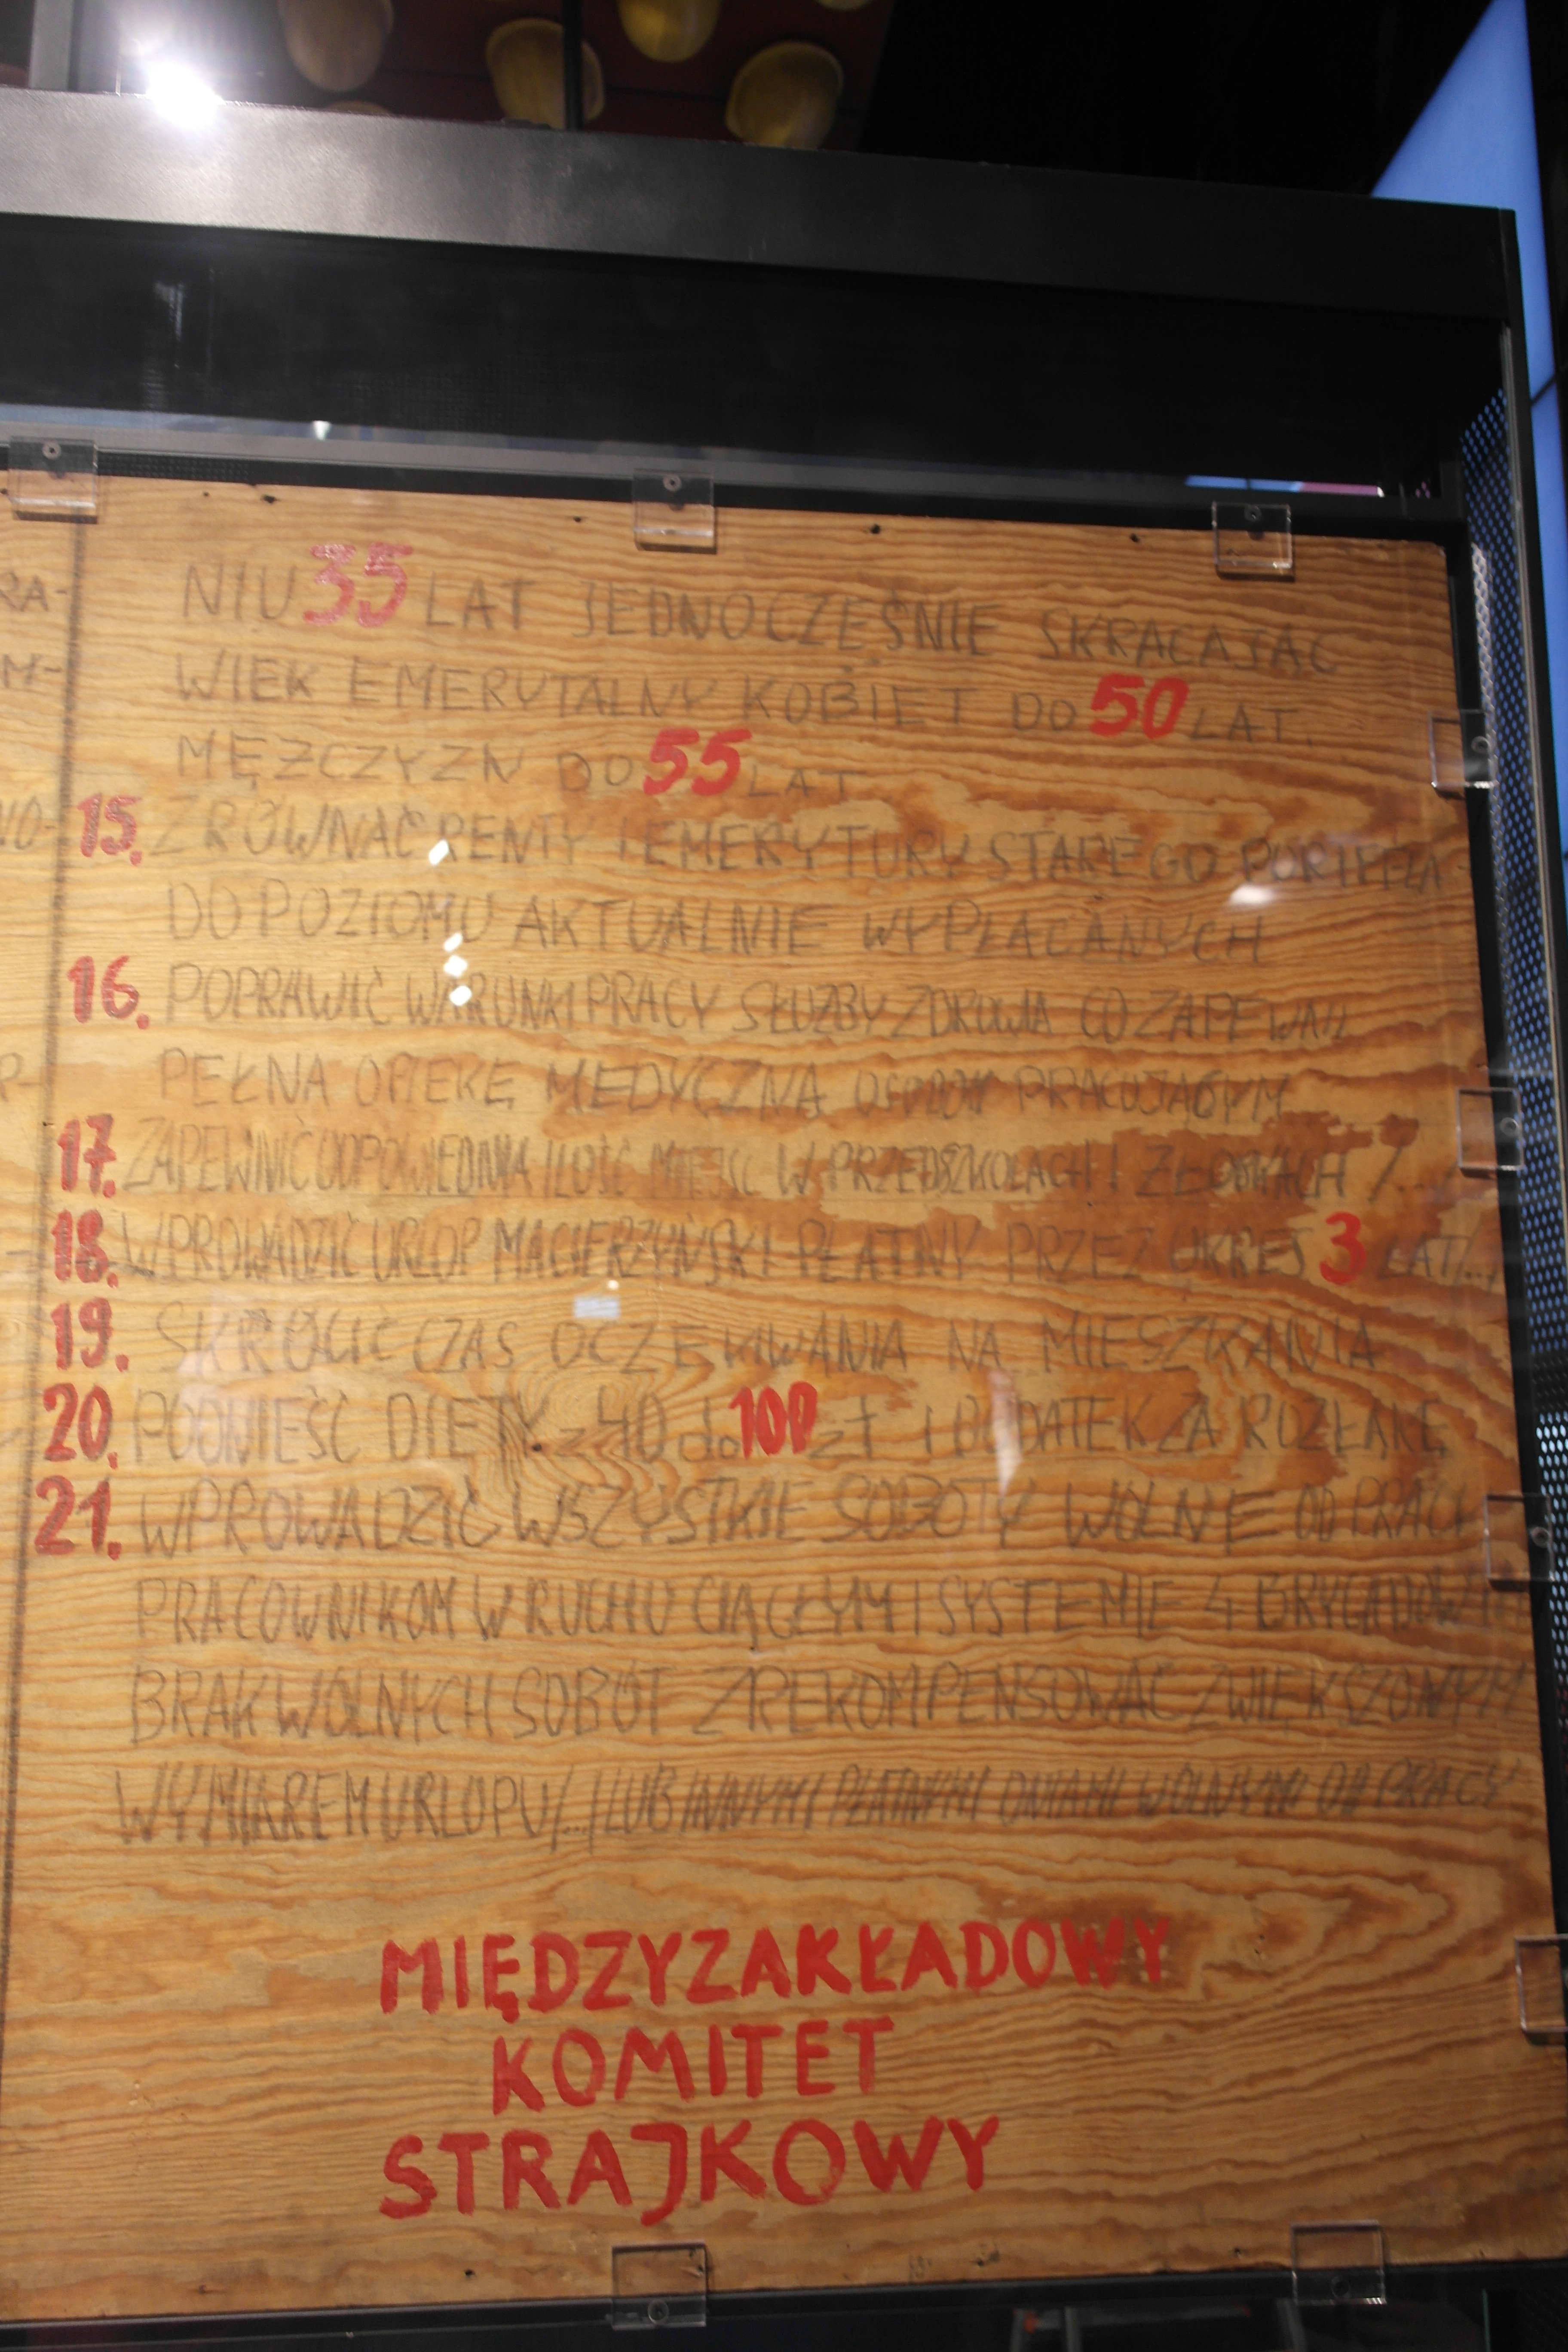 RA-
M-
NO-
R-
NIU 35 LAT JEDNOCZEŚNIE SKRACAJĄC
WIEK EMERYTALNY KOBIET DO 50 LAT.
MĘZCZYZN DO 55 LAT
15. ZRÓWNAĆ RENTY I EMERYTURY STAREGO PORTFELA
DO POZIOMU AKTUALNIE WYPŁACANYCH
16. POPRAWIĆ WARUNKI PRACY SŁUŻBY ZDROWIA CO ZAPEWNI
PEŁNĄ OPIEKĘ MEDYCZNĄ OSOBOM PRACUJĄCYM
17. ZAPEWNIĆ ODPOWIEDNIĄ ILOŚĆ MIEJSC W PRZEDSZKOLACH I ŻŁOBKACH /...
18. WPROWADZIĆ URLOP MACIERZYŃSKI PŁATNY PRZEZ OKRES 3 LAT/.../
19. SKRÓCIĆ CZAS OCZEKIWANIA NA MIESZKANIA
20. PODNIEŚĆ DIETY z 40 do 100 zł i DODATEK ZA ROZŁĄKĘ
21. WPROWADZIĆ WSZYSTKIE SOBOTY WOLNE OD PRACY
PRACOWNIKOM W RUCHU CIĄGŁYM I SYSTEMIE 4 BRYGADOWYM
BRAK WOLNYCH SOBÓT ZREKOMPENSOWAĆ ZWIĘKSZONYM
WYMIAREM URLOPU/.../LUB INNYMI PŁATNYMI DNIAMI WOLNYMI OD PRACY
MIĘDZYZAKŁADOWY
KOMITET
STRAJKOWY